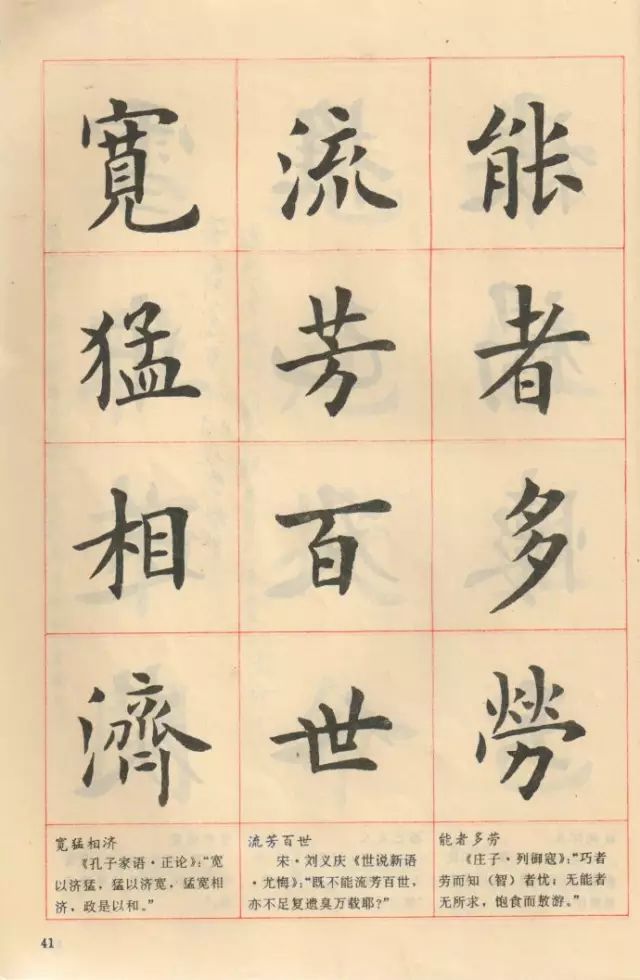 能者多勞
流芳百世
寬猛相濟
宽猛相济
《孔子家语·正论》:“宽
以济猛,猛以济宽,猛宽相
济,政是以和。”
流芳百世
宋·刘义庆《世说新语
·尤悔》:“既不能流芳百世,
亦不足复遗臭万载耶?”
能者多劳
《庄子·列御寇》:“巧者
劳而知(智)者忧;无能者
无所求,饱食而敖游。”
41